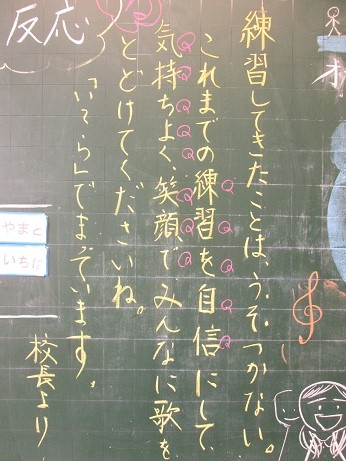 練習してきたことは、うそつかない。
これまでの練習を自信にして、
気持ちよく、笑顔でみんなに歌を
とどけてくださいね。
でまっています。
校長より
反応
やまと